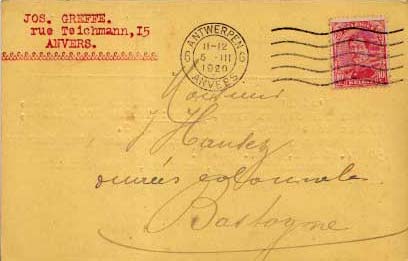 JOS. GREFFE.
rue Teichmann,15
ANVERS.
6 ANTWERPEN 6
11-12
5 -III
1920
ANVERS
Monsieur
J Hantez
denrées coloniales
Bastogne